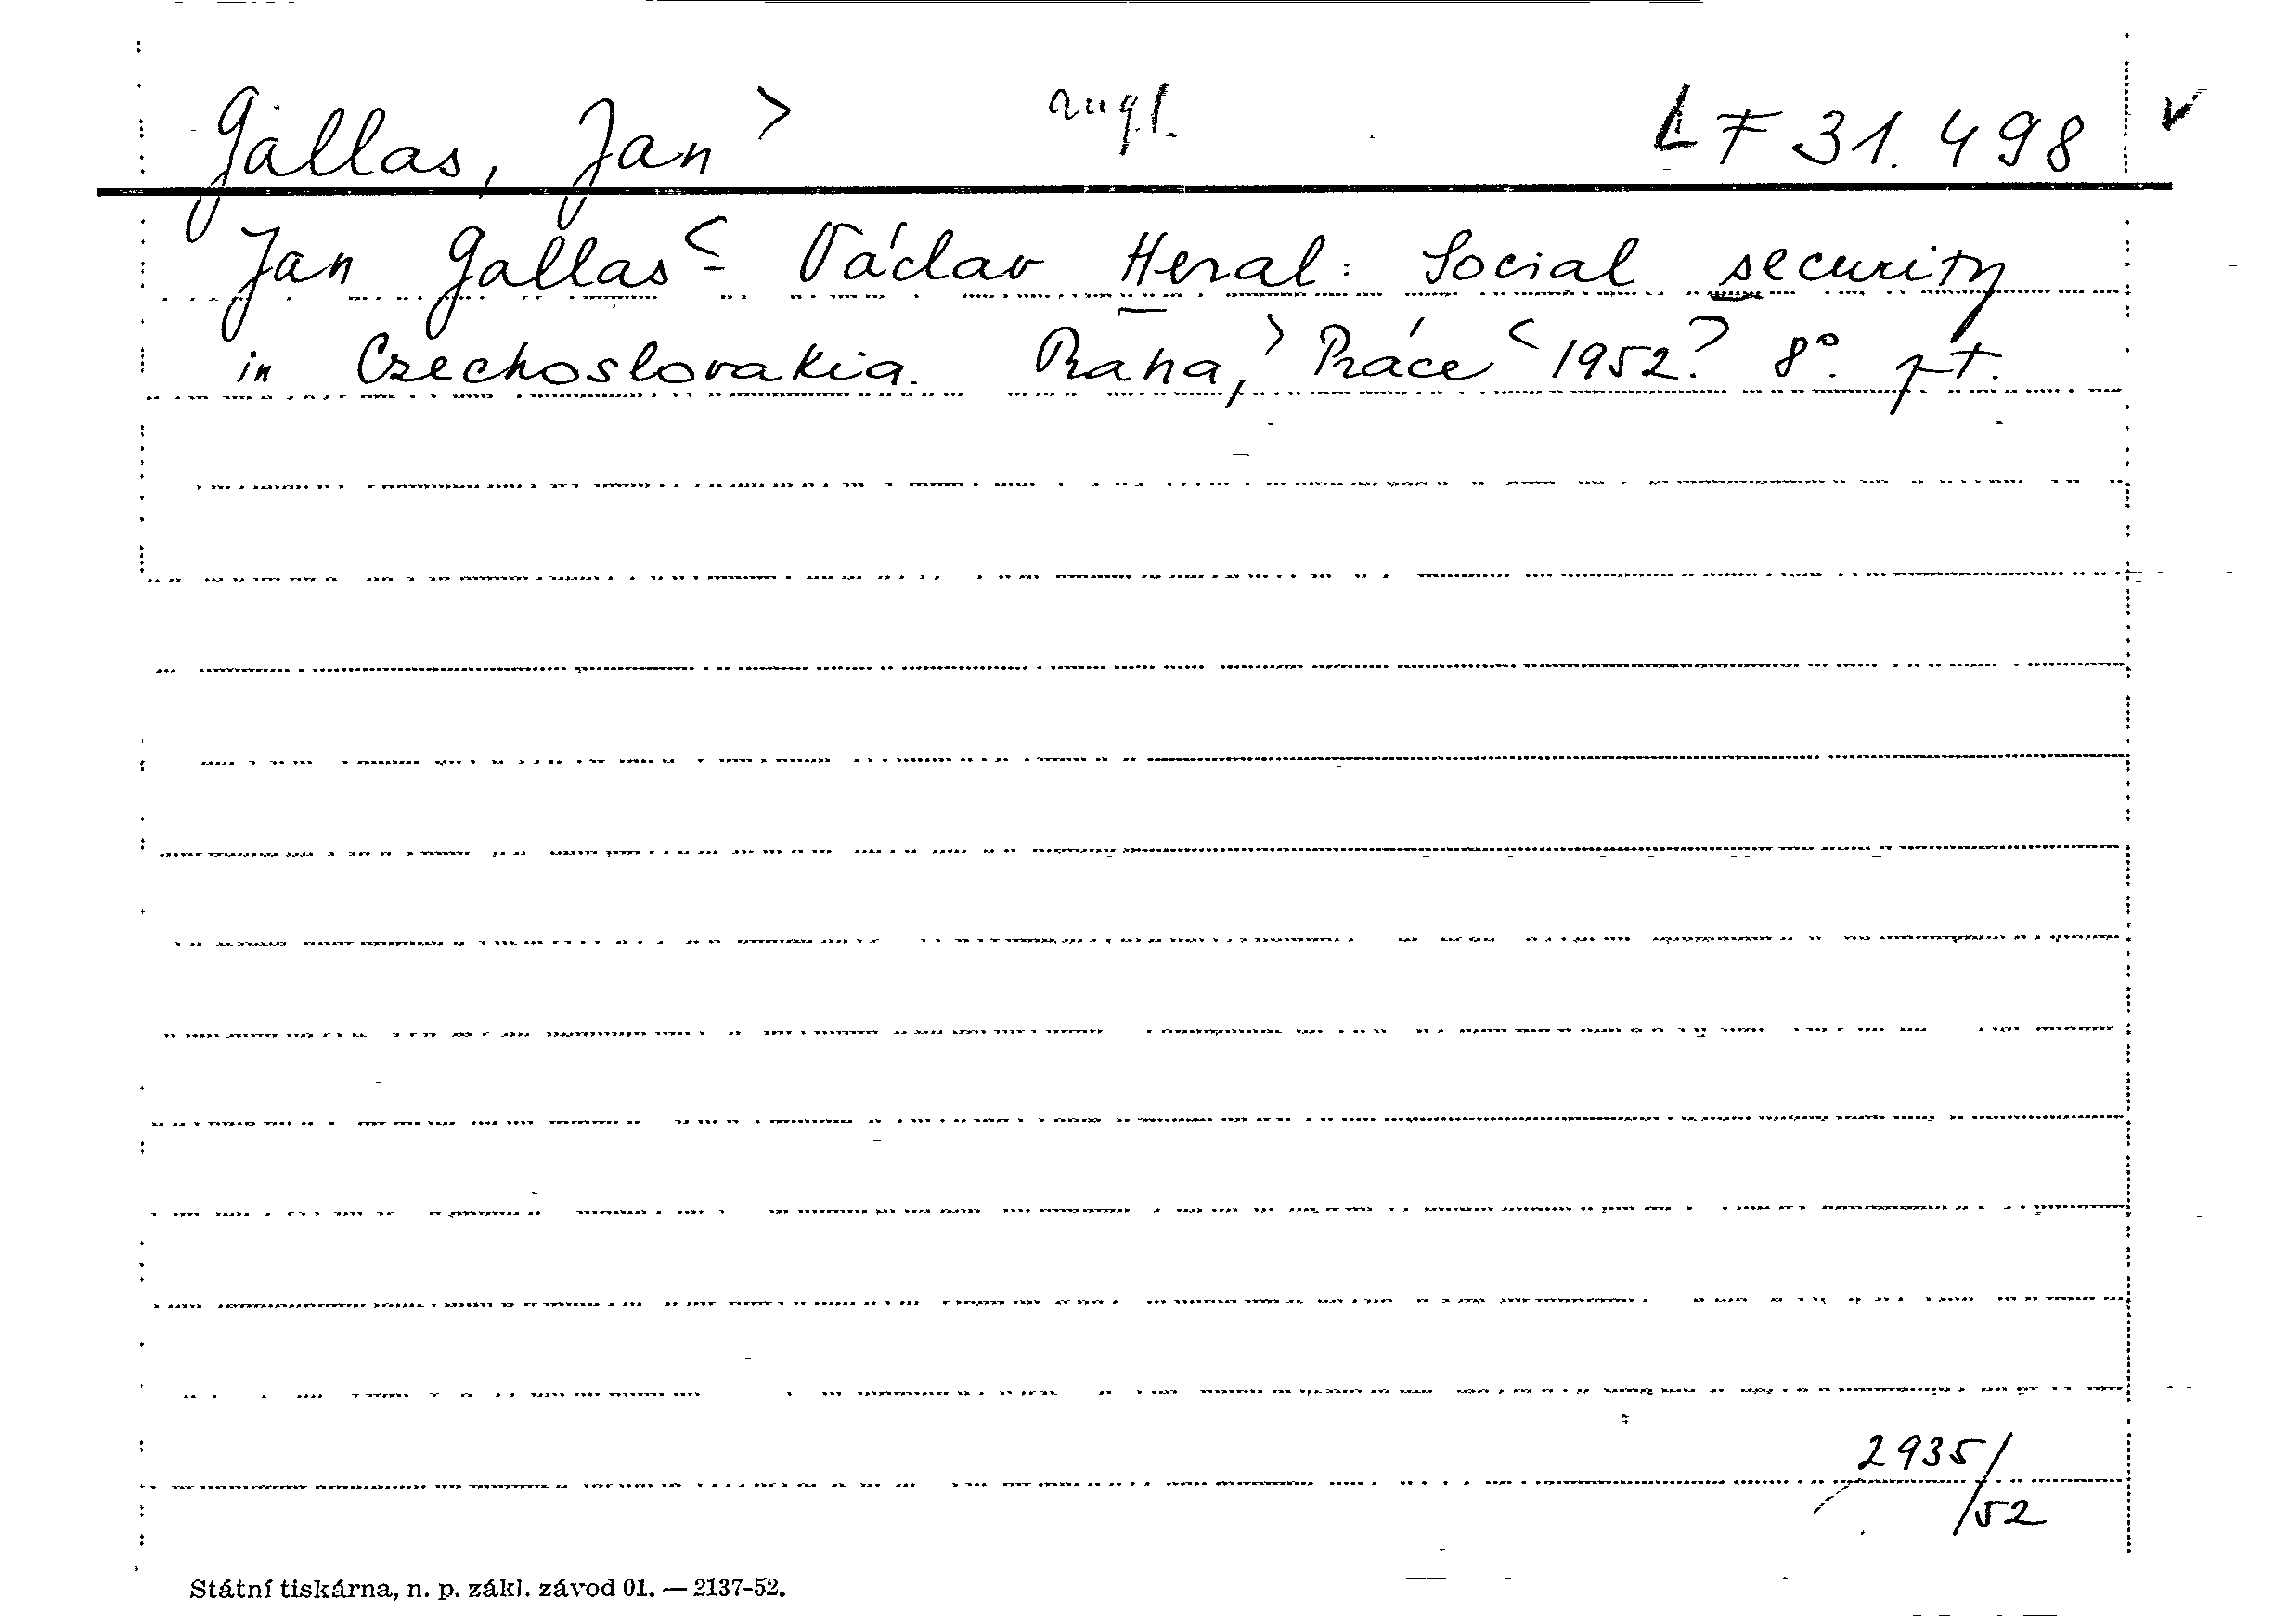 Gallas, Jan > angl. LF 31.498 v
Jan Gallas < – Václav Heral: Social security
in Czechoslovakia. Praha, > Práce < 1952? 8°. pt.
2935/
/52
Státní tiskárna, n. p. zákl. závod 01. — 2137-52.